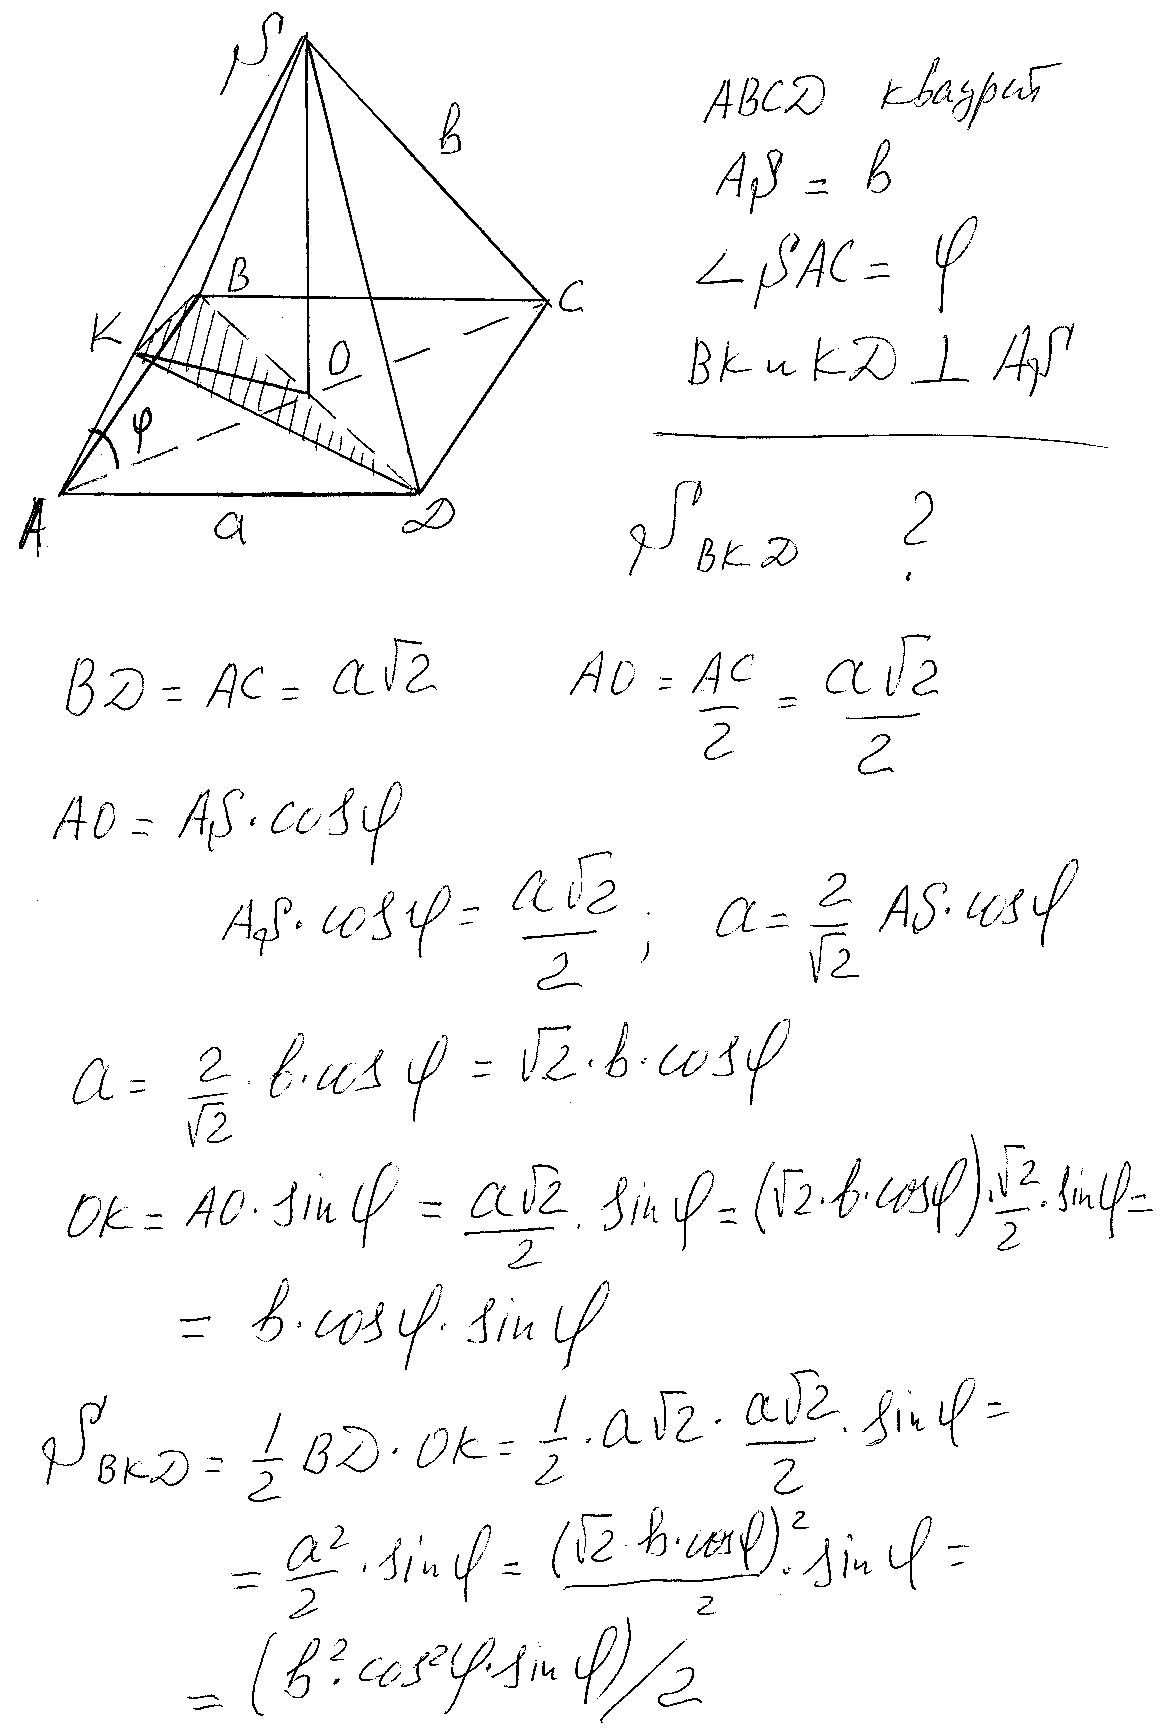 S
в
B
C
K
O
φ
A
a
D
ABCD квадрат
AS = в
∠SAC = φ
BK и KD ⊥ AS
S_BKD ?
BD = AC = a√2 AO = AC/2 = a√2/2
AO = AS·cosφ
AS·cosφ = a√2/2 ; a = 2/√2 AS·cosφ
a = 2/√2 · в·cosφ = √2·в·cosφ
OK = AO·sinφ = a√2/2 · sinφ = (√2·в·cosφ)·√2/2·sinφ =
= в·cosφ·sinφ
S_BKD = 1/2 BD·OK = 1/2·a√2·a√2/2·sinφ =
= a²/2·sinφ = (√2·в·cosφ)²/2·sinφ =
= (в²·cos²φ·sinφ)/2